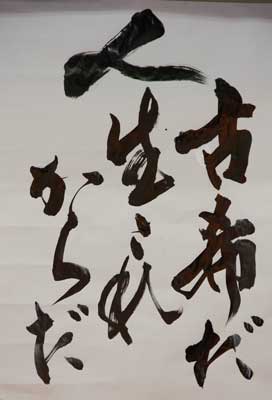 古希だ
人生これ
からだ